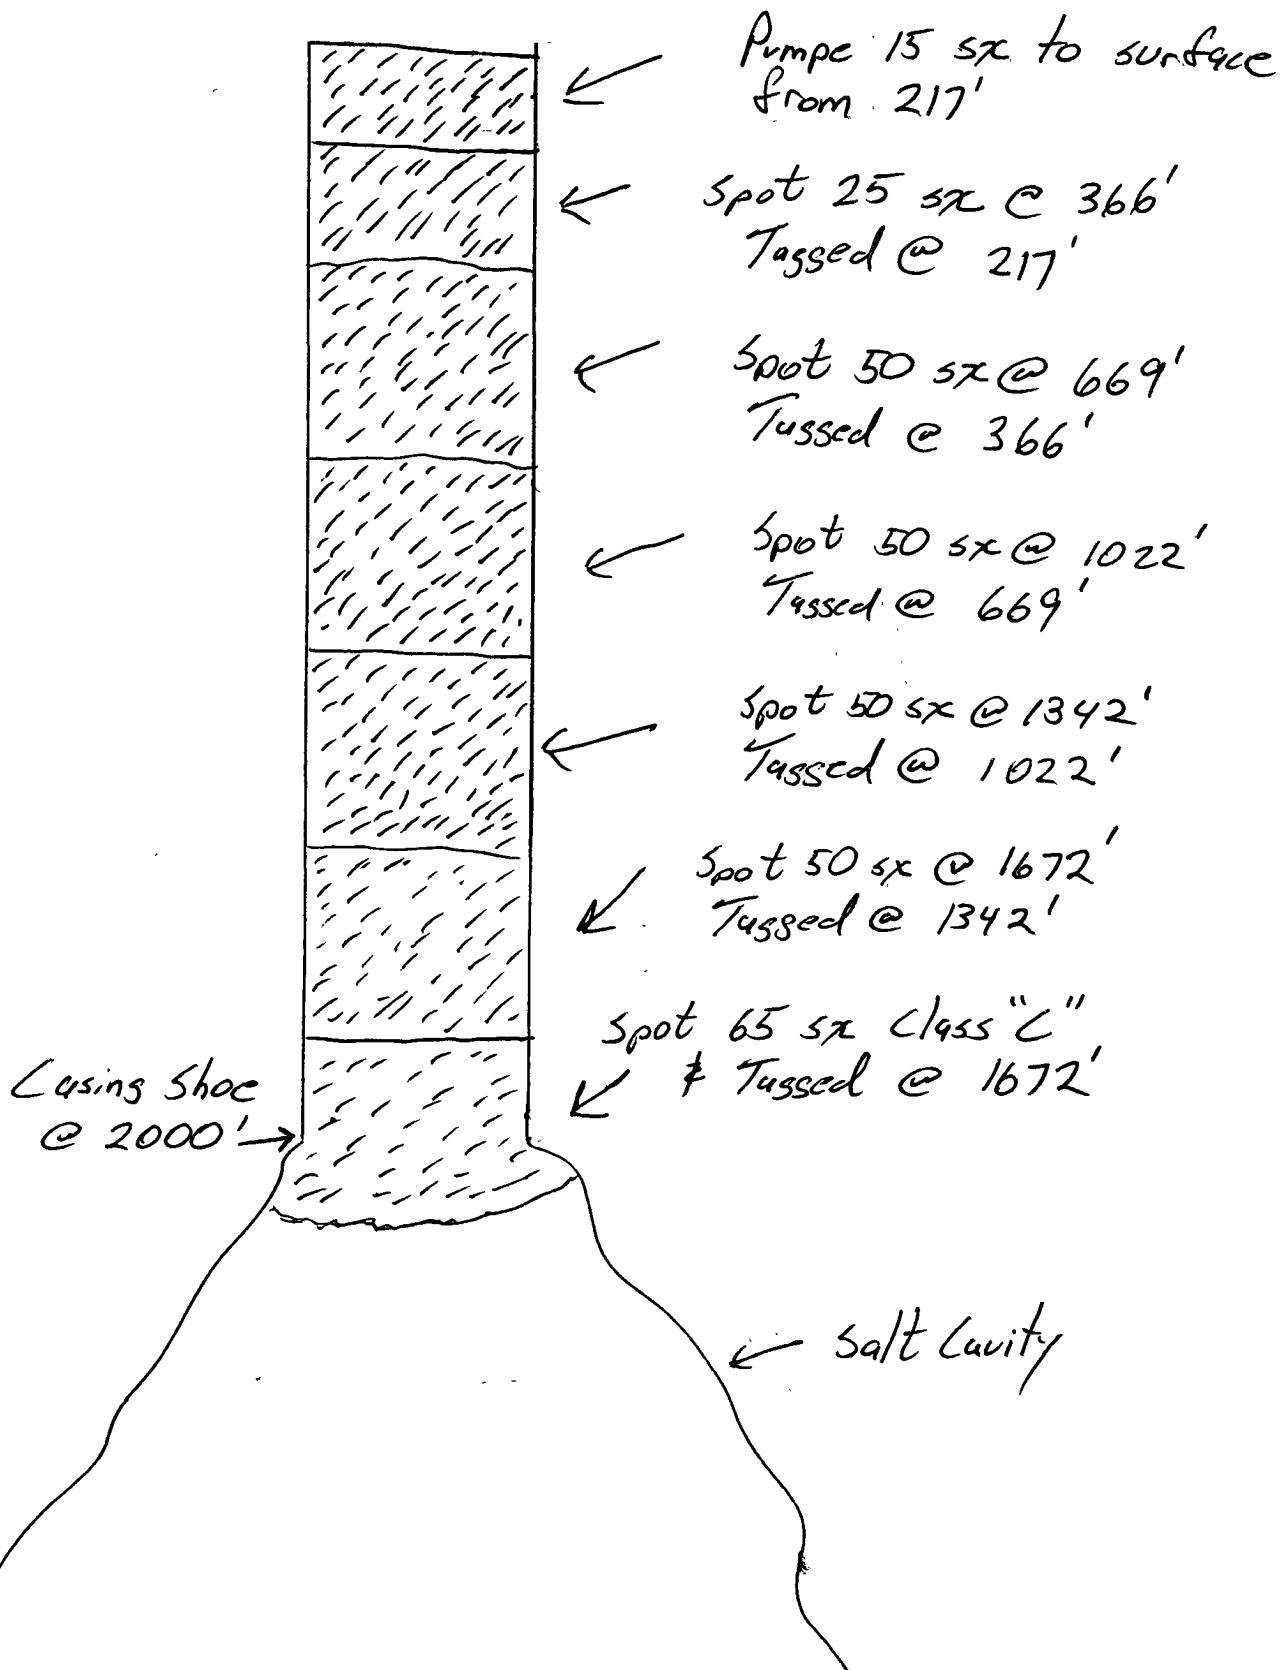 Pumpe 15 sx to surface
from 217'
Spot 25 sx @ 366'
Tagged @ 217'
Spot 50 sx @ 669'
Tagged @ 366'
Spot 50 sx @ 1022'
Tagged @ 669'
Spot 50 sx @ 1342'
Tagged @ 1022'
Spot 50 sx @ 1672'
Tagged @ 1342'
Spot 65 sx Class "C"
& Tagged @ 1672'
Casing Shoe
@ 2000'
Salt Cavity